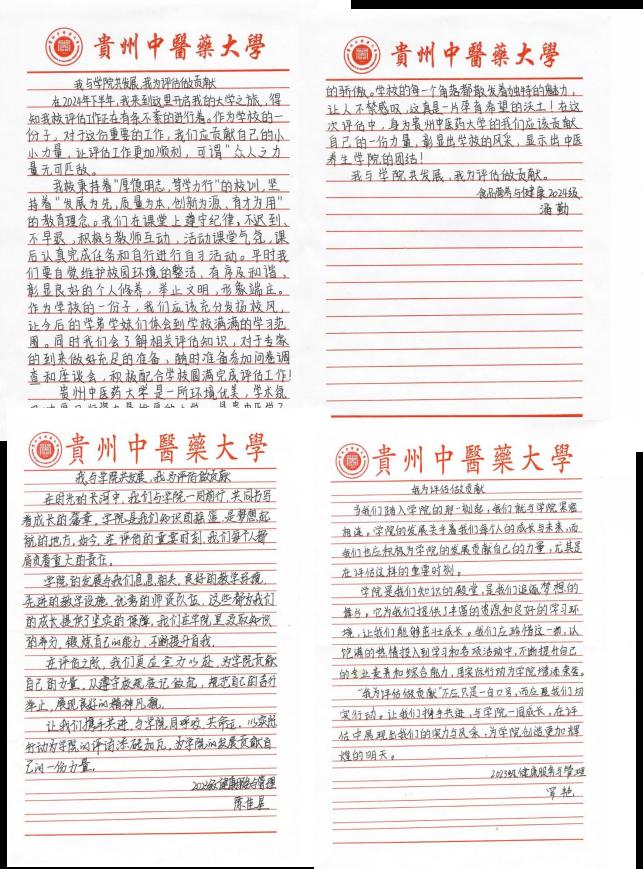 貴州中醫藥大學
我与学院共发展,我为评估做贡献
在2024年下半年,我来到这里开启我的大学之旅,得
知我校评估工作正在有条不紊的进行着。作为学校的一
份子,对于这份重要的工作,我们应贡献自己的小
小力量,让评估工作更加顺利,可谓“众人之力
量无可匹敌。
我校秉持着“厚德困志,笃学力行”的校训,坚
持着“发展为先,质量为本,创新为源,育才为用”
的教育理念。我们在课堂上遵守纪律,不迟到、
不早退,积极与教师互动,活动课堂气氛,课
后认真完成任务和自行进行自习活动。平时我
们要自觉维护校园环境的整洁,有序及和谐,
彰显良好的个人修养,举止文明,形象端庄。
作为学校的一份子,我们应该充分发扬校风,
让今后的学弟学妹们体会到学校满满的学习氛
围。同时我们会了解相关评估知识,对于专家
的到来做好充足的准备,随时准备参加问卷调
查和座谈会,积极配合学校圆满完成评估工作!
贵州中医药大学是一所环境优美,学术氛
貴州中醫藥大學
的骄傲。学校的每一个角落都散发着独特的魅力,
让人不禁感叹,这真是一片孕育希望的沃土!在这
次评估中,身为贵州中医药大学的我们应该贡献
自己的一份力量,彰显出学校的风采,显示出中医
养生学院的团结!
我与学院共发展,我为评估做贡献。
食品营养与健康2024级
潘勤
貴州中醫藥大學
我与学院共发展,我为评估做贡献
在时光的长河中,我们与学院一同前行,共同书写
着成长的篇章。学院是我们知识的摇篮,是梦想起
航的地方,如今,在评估的重要时刻,我们每个人都
肩负着重大的责任。
学院的发展与我们息息相关。良好的教学环境、
先进的教学设施、优秀的师资队伍,这些都为我们
的成长提供了坚实的保障。我们在学院里汲取知识
的养分,锻炼自己的能力,不断提升自我。
在评估之际,我们更应全力以赴,为学院贡献
自己的力量。从遵守校规校纪做起,规范自己的言行
举止,展现良好的精神风貌。
让我们携手共进,与学院同呼吸、共命运,以实际
行动为学院的评估添砖加瓦,为学院的发展贡献自
己的一份力量。
2023级健康服务与管理
陈佳星
貴州中醫藥大學
我为评估做贡献
当我们踏入学院的那一刻起,我们就与学院紧密
相连。学院的发展关乎着我们每个人的成长与未来,而
我们也应积极为学院的发展贡献自己的力量,尤其是
在评估这样的重要时刻。
学院是我们知识的殿堂,是我们追逐梦想的
舞台。它为我们提供了丰富的资源和良好的学习环
境,让我们能够茁壮成长。我们应珍惜这一切,以
饱满的热情投入到学习和各项活动中,不断提升自己
的专业素养和综合能力,用实际行动为学院增添荣誉。
“我为评估做贡献”不应只是一句口号,而应是我们切
实行动。让我们携手共进,与学院一同成长,在评
估中展现出我们的实力与风采,为学院创造更加辉
煌的明天。
2023级健康服务与管理
罗艳